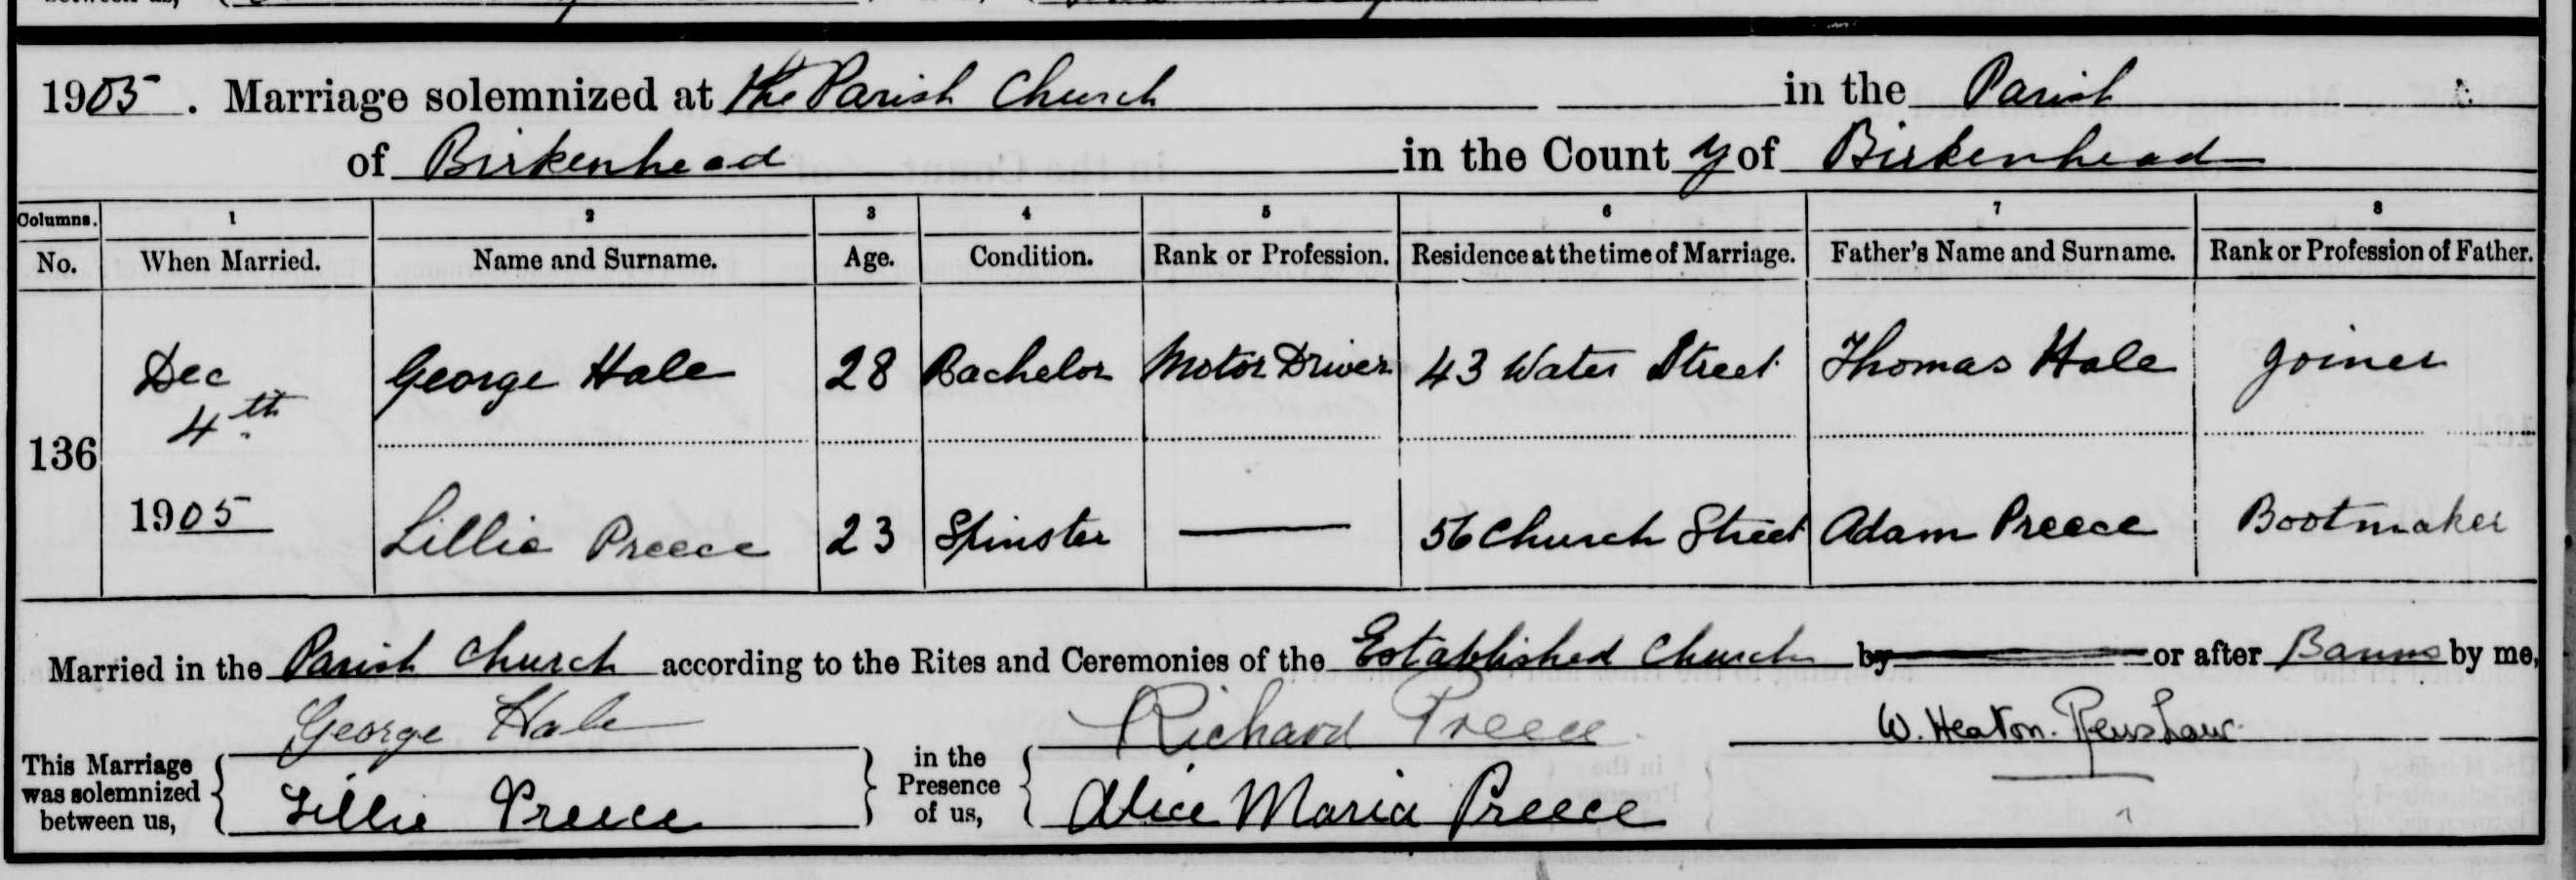 1905. Marriage solemnized at the Parish Church in the Parish
of Birkenhead in the County of Birkenhead
Columns. 1 2 3 4 5 6 7 8
No. When Married. Name and Surname. Age. Condition. Rank or Profession. Residence at the time of Marriage. Father's Name and Surname. Rank or Profession of Father.
136 Dec 4th 1905
George Hale 28 Bachelor Motor Driver 43 Water Street Thomas Hale Joiner
Lillie Preece 23 Spinster — 56 Church Street Adam Preece Bootmaker
Married in the Parish Church according to the Rites and Ceremonies of the Established Church by or after Banns by me,
George Hale Richard Preece W. Heaton Renshaw
This Marriage was solemnized between us, in the Presence of us,
Lillie Preece Alice Maria Preece